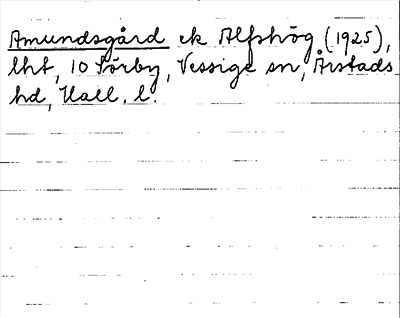 Amundsgård ek Alfshög (1925),
lht, 10 Sörby, Vessige sn, Årstads
hd, Hall. l.